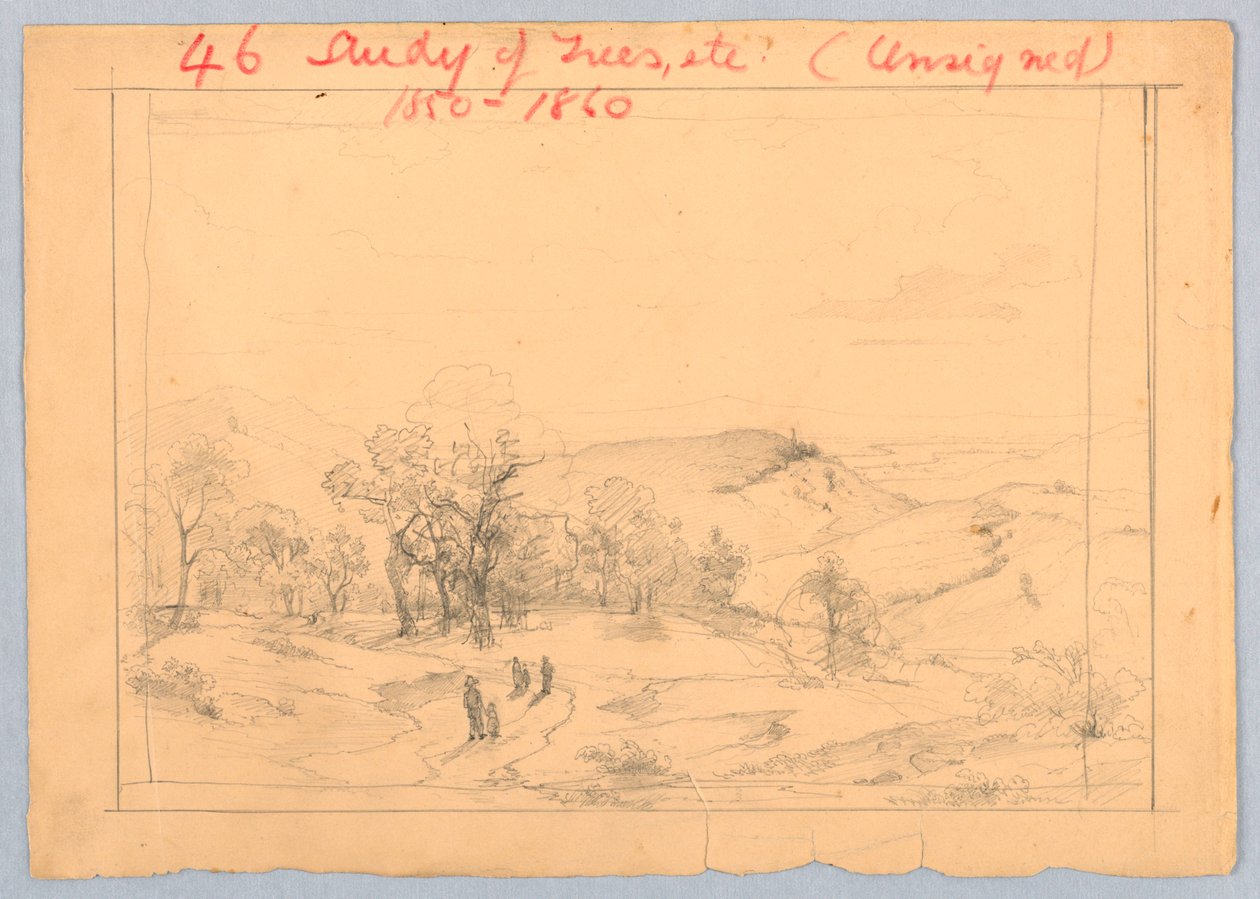 46 Study of Trees, etc. (Unsigned)
1850-1860